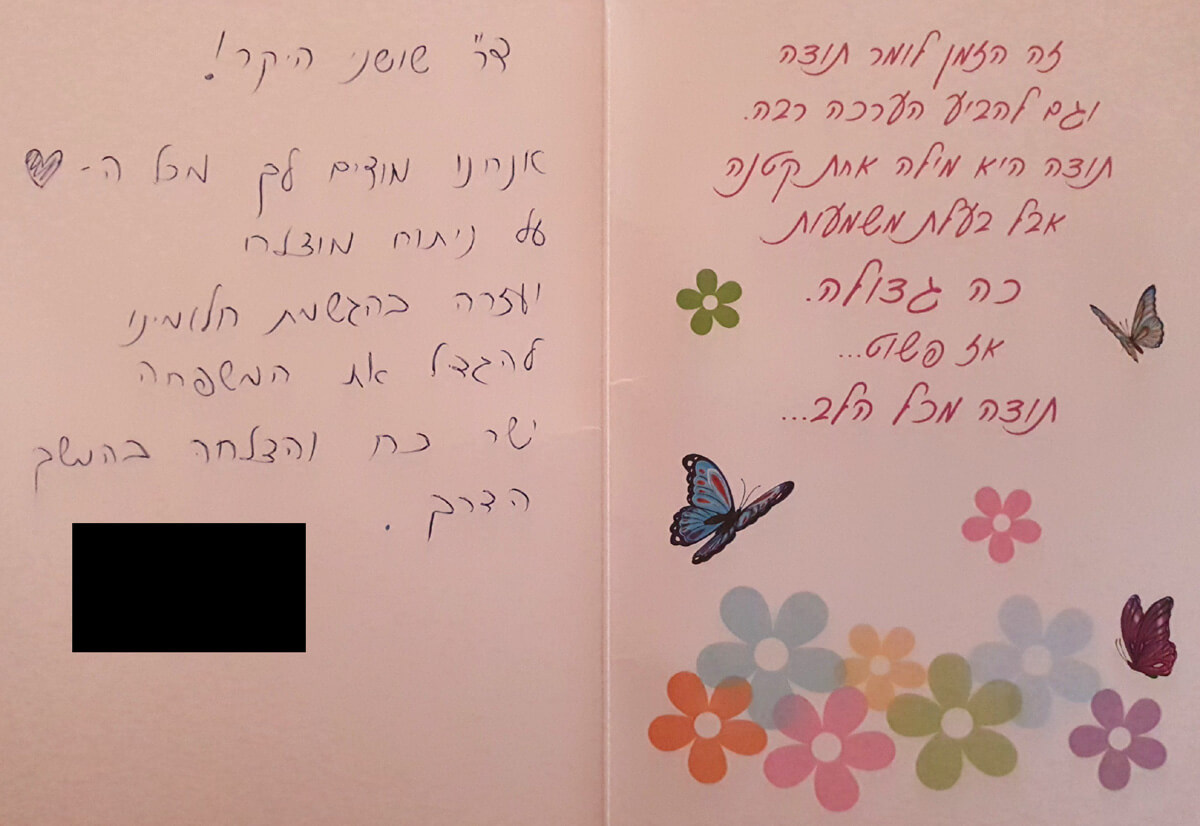 זה הזמן לומר תודה
וגם להביע הערכה רבה.
תודה היא מילה אחת קטנה
אבל בעלת משמעות
כה גדולה.
אז פשוט...
תודה מכל הלב...
ד"ר שושני היקר!
אנחנו מודים לך מכל ה-
על ניתוח מוצלח
ועזרה בהגשמת חלומינו
להגדיל את המשפחה
ישר כח והצלחה בהמשך
הדרך.